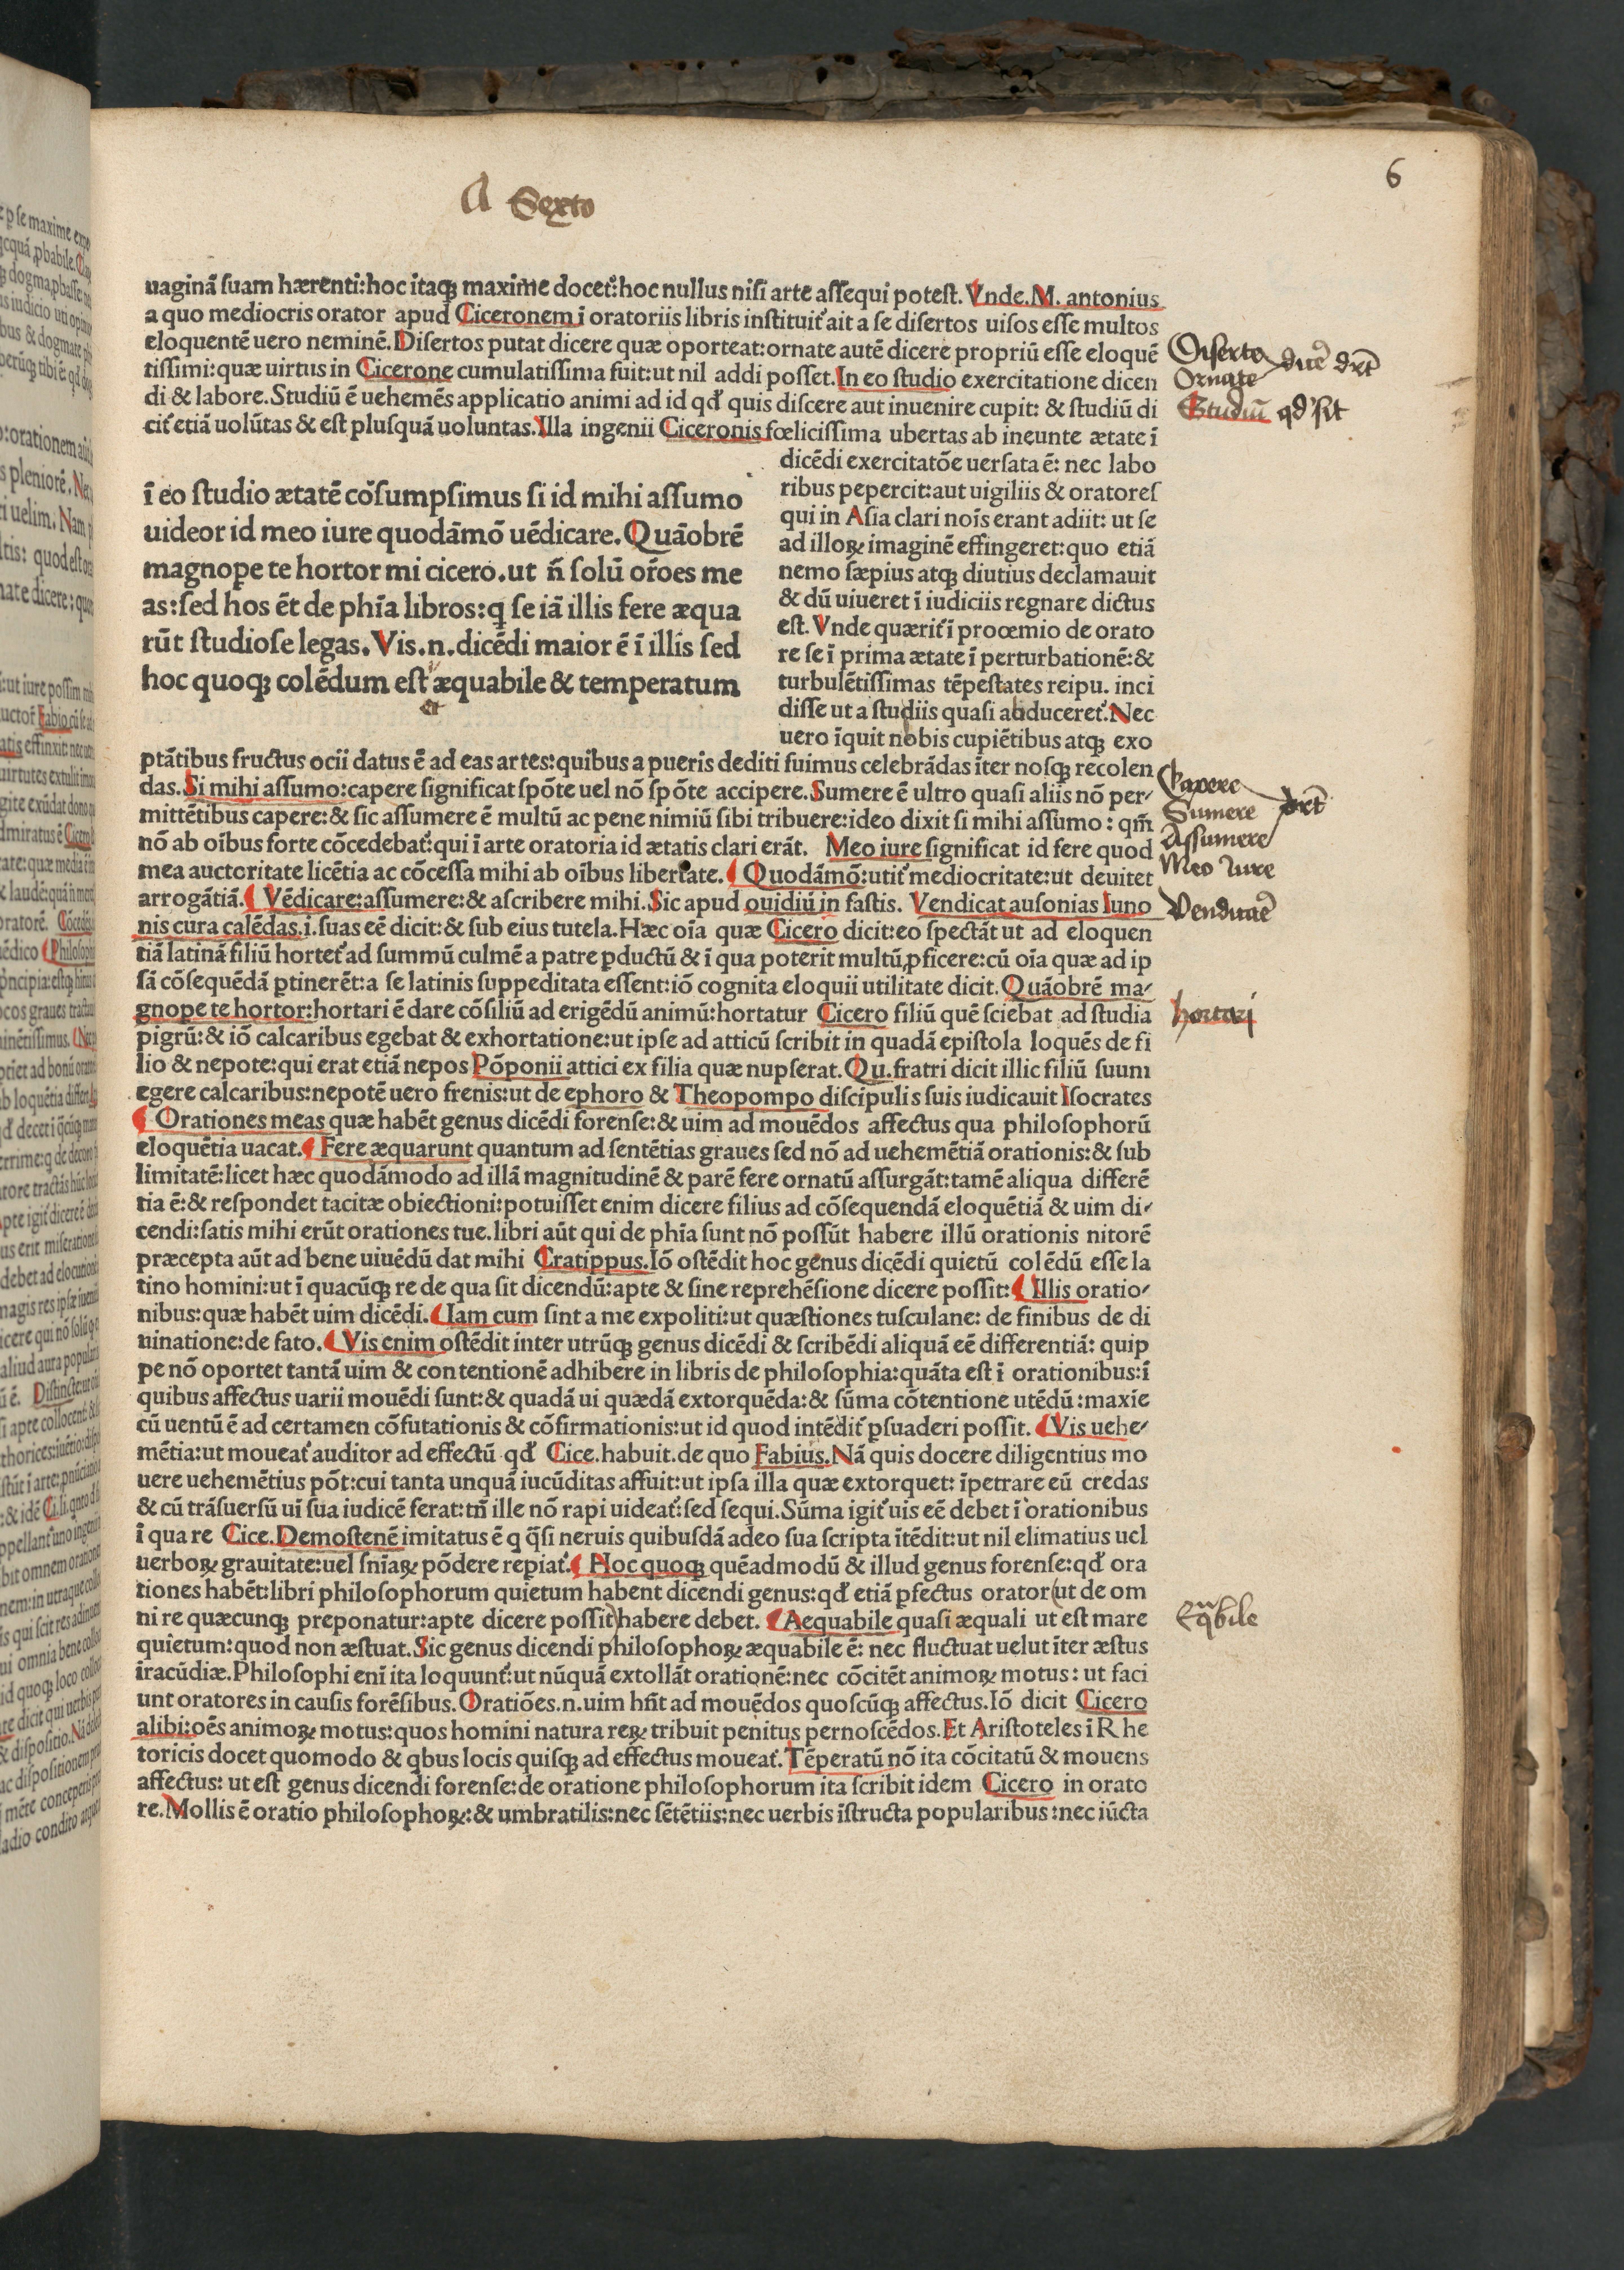 6
A Sexto
uaginā suam hærenti:hoc itaqꝫ maxime docet᷑:hoc nullus nisi arte assequi potest. Vnde.M. antonius
a quo mediocris orator apud Ciceronem ī oratoriis libris instituit᷑ ait a se disertos uisos esse multos
eloquentē uero neminē. Disertos putat dicere quæ oporteat:ornate autē dicere propriū esse eloquē
tissimi:quæ uirtus in Cicerone cumulatissima fuit:ut nil addi posset. In eo studio exercitatione dicen
di & labore. Studiū ē uehemēs applicatio animi ad id qd' quis discere aut inuenire cupit: & studiū di
cit᷑ etiā uolūtas & est plusquā uoluntas. Illa ingenii Ciceronis fœlicissima ubertas ab ineunte ætate ī
dicēdi exercitatōe uersata ē: nec labo
ribus pepercit:aut uigiliis & oratores
qui in Asia clari noīs erant adiit: ut se
ad illoꝝ imaginē effingeret:quo etiā
nemo sæpius atqꝫ diutius declamauit
& dū uiueret ī iudiciis regnare dictus
est. Vnde quærit᷑ ī proœmio de orato
re se ī prima ætate ī perturbationē:&
turbulētissimas tēpestates reipu. inci
disse ut a studiis quasi abduceret᷑. Nec
uero īquit nobis cupiētibus atqꝫ exo
ī eo studio ætatē cōsumpsimus si id mihi assumo
uideor id meo iure quodāmō uēdicare. Quāobrē
magnope te hortor mi cicero.ut n̄ solū or̄oes me
as:sed hos ēt de phīa libros:q̨ se iā illis fere æqua
rūt studiose legas. Vis.n.dicēdi maior ē ī illis sed
hoc quoqꝫ colēdum est æquabile & temperatum
et
ptātibus fructus ocii datus ē ad eas artes:quibus a pueris dediti fuimus celebrādas īter nosqꝫ recolen
das. Si mihi assumo:capere significat spōte uel nō spōte accipere. Sumere ē ultro quasi aliis nō per-
mittētibus capere:& sic assumere ē multū ac pene nimiū sibi tribuere:ideo dixit si mihi assumo: qm̄
nō ab oībus forte cōcedebat᷑:qui ī arte oratoria id ætatis clari erāt. Meo iure significat id fere quod
mea auctoritate licētia ac cōcessa mihi ab oībus libertate. ¶ Quodāmō:utit᷑ mediocritate:ut deuitet
arrogātiā. ¶ Vēdicare:assumere:& ascribere mihi. Sic apud ouidiū in fastis. Vendicat ausonias Iuno
nis cura calēdas.i.suas eē dicit:& sub eius tutela. Hæc oīa quæ Cicero dicit:eo spectāt ut ad eloquen
tiā latinā filiū hortet᷑ ad summū culmē a patre ꝑductū & ī qua poterit multū ꝓficere:cū oīa quæ ad ip
sā cōsequēdā ꝑtinerēt:a se latinis suppeditata essent:iō cognita eloquii utilitate dicit. Quāobrē ma-
gnope te hortor:hortari ē dare cōsiliū ad erigēdū animū:hortatur Cicero filiū quē sciebat ad studia
pigrū:& iō calcaribus egebat & exhortatione:ut ipse ad atticū scribit in quadā epistola loquēs de fi
lio & nepote:qui erat etiā nepos Pōponii attici ex filia quæ nupserat. Qu.fratri dicit illic filiū suum
egere calcaribus:nepotē uero frenis:ut de ephoro & Theopompo discipulis suis iudicauit Isocrates
¶ Orationes meas quæ habēt genus dicēdi forense:& uim ad mouēdos affectus qua philosophorū
eloquētia uacat. ¶ Fere æquarunt quantum ad sentētias graues sed nō ad uehemētiā orationis:& sub
limitatē:licet hæc quodāmodo ad illā magnitudinē & parē fere ornatū assurgāt:tamē aliqua differē
tia ē:& respondet tacitæ obiectioni:potuisset enim dicere filius ad cōsequendā eloquētiā & uim di-
cendi:satis mihi erūt orationes tue.libri aūt qui de phīa sunt nō possūt habere illū orationis nitorē
præcepta aūt ad bene uiuēdū dat mihi Cratippus. Iō ostēdit hoc genus dicēdi quietū colēdū esse la
tino homini:ut ī quacūqꝫ re de qua sit dicendū:apte & sine reprehēsione dicere possit: ¶ Illis oratio-
nibus:quæ habēt uim dicēdi. ¶ Iam cum sint a me expoliti:ut quæstiones tusculane: de finibus de di
uinatione:de fato. ¶ Vis enim ostēdit inter utrūqꝫ genus dicēdi & scribēdi aliquā eē differentiā: quip
pe nō oportet tantā uim & contentionē adhibere in libris de philosophia:quāta est ī orationibus:ī
quibus affectus uarii mouēdi sunt:& quadā ui quædā extorquēda:& sūma cōtentione utēdū:maxīe
cū uentū ē ad certamen cōfutationis & cōfirmationis:ut id quod intēdit᷑ ꝑsuaderi possit. ¶ Vis uehe-
mētia:ut moueat᷑ auditor ad effectū qd' Cice.habuit.de quo Fabius. Nā quis docere diligentius mo
uere uehemētius pōt:cui tanta unquā iucūditas affuit:ut ipsa illa quæ extorquet: īpetrare eū credas
& cū trāsuersū ui sua iudicē ferat:tn̄ ille nō rapi uideat᷑:sed sequi. Sūma igit᷑ uis eē debet ī orationibus
ī qua re Cice. Demostenē imitatus ē q q̄si neruis quibusdā adeo sua scripta ītēdit:ut nil elimatius uel
uerboꝝ grauitate:uel sn̄iaꝝ pōdere repiat᷑. ¶ Hoc quoqꝫ quēadmodū & illud genus forense:qd' ora
tiones habēt:libri philosophorum quietum habent dicendi genus:qd' etiā ꝑfectus orator(ut de om
ni re quæcunqꝫ preponatur:apte dicere possit)habere debet. ¶ Aequabile quasi æquali ut est mare
quietum:quod non æstuat. Sic genus dicendi philosophoꝝ æquabile ē: nec fluctuat uelut īter æstus
iracūdiæ. Philosophi enī ita loquunt᷑:ut nūquā extollāt orationē:nec cōcitēt animoꝝ motus: ut faci
unt oratores in causis forēsibus. Oratiōes.n.uim hn̄t ad mouēdos quoscūqꝫ affectus. Iō dicit Cicero
alibi:oēs animoꝝ motus:quos homini natura reꝝ tribuit penitus pernoscēdos. Et Aristoteles ī Rhe
toricis docet quomodo & qbus locis quisqꝫ ad effectus moueat᷑. Tēperatū nō ita cōcitatū & mouens
affectus: ut est genus dicendi forense:de oratione philosophorum ita scribit idem Cicero in orato
re. Mollis ē oratio philosophoꝝ:& umbratilis:nec sētētiis:nec uerbis īstructa popularibus:nec iūcta
Diserte
Ornate
Studiū qd' sit
Capere
Sumere
Assumere
Meo Iure
Vendicare
hortari
Eqbile